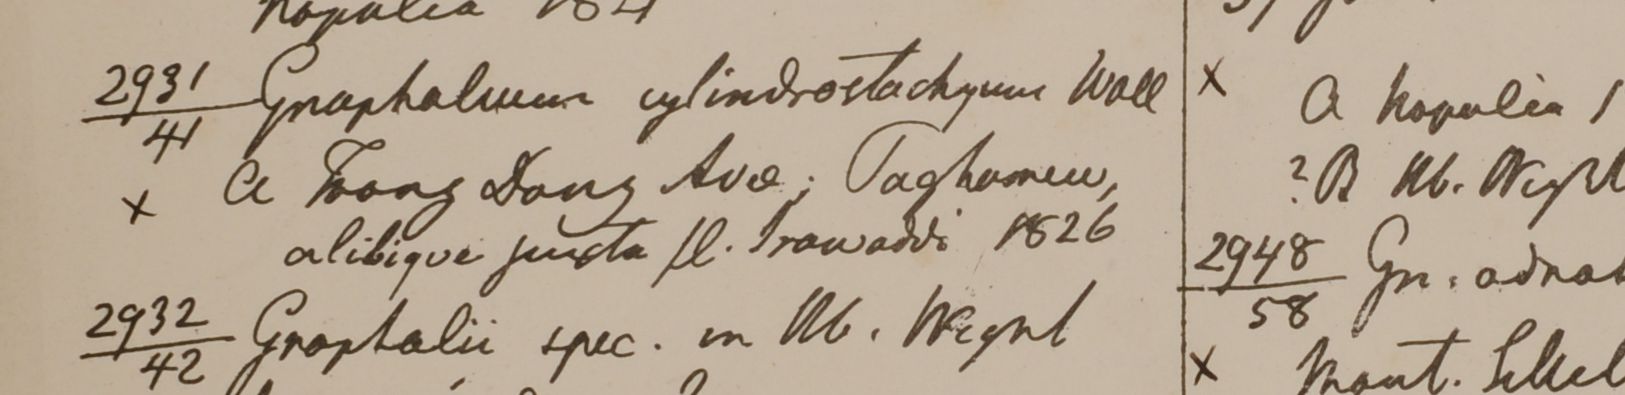 Napalia 1821
2931/41 Gnaphalium cylindrostachyum Wall
x a Toong Dong Avæ; Taghamew,
alibique juxta fl. Irawaddi 1826
2932/42 Gnaphalii spec. in Hb. Weynt
x a Napalia 1
? B Hb. Weynt
2948/58 Gn. adnat
x Mont. Sillet